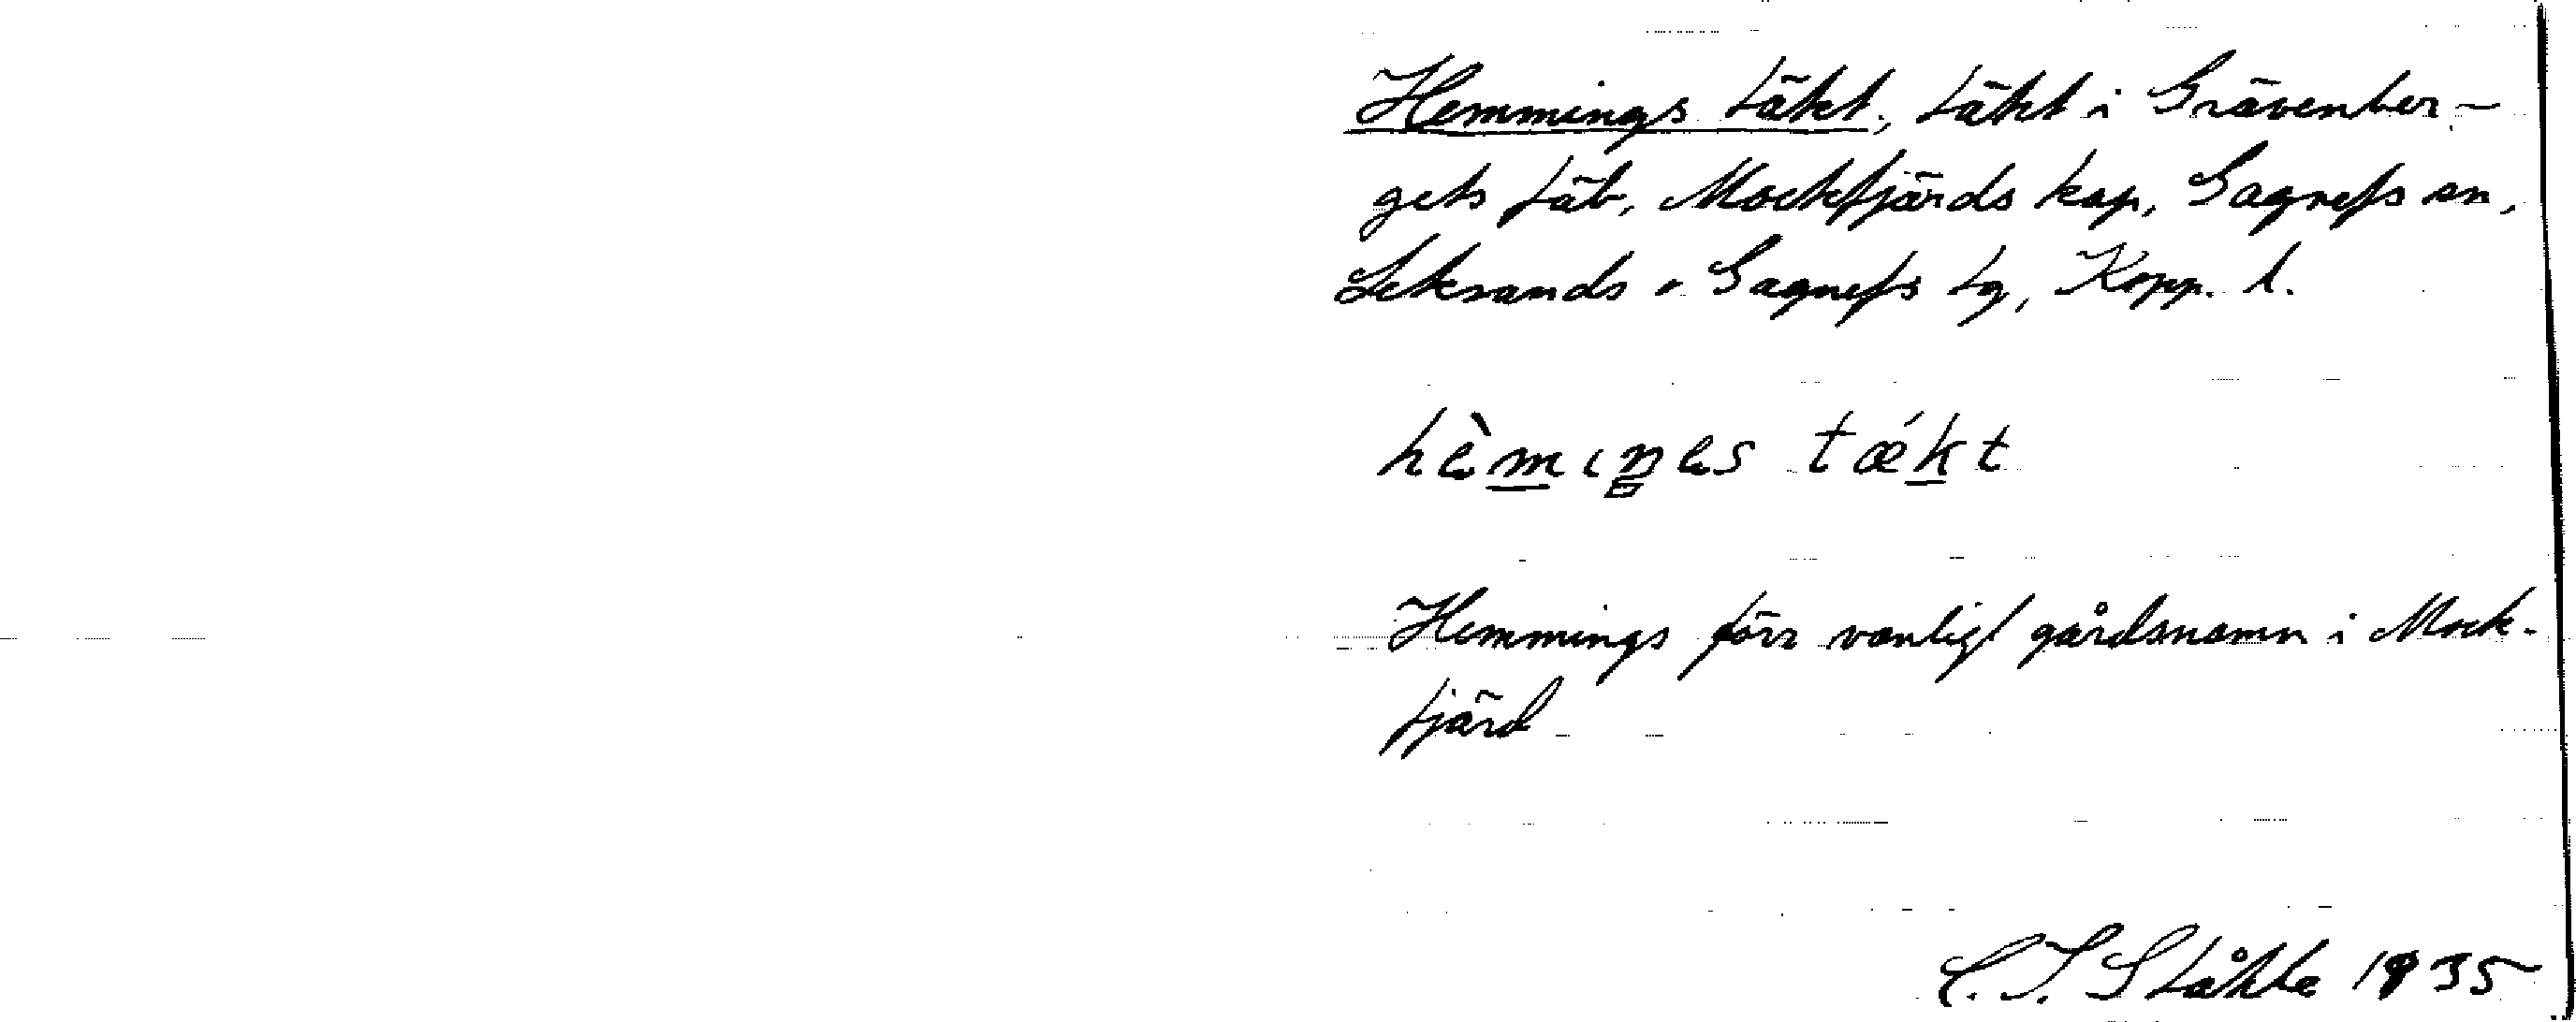 Hemmings täkt, täkt i Grävenber-
gets fäb, Mockfjärds kap, Gagnefs sn,
Leksands o Gagnefs tg, Kopp. l.
hèmiŋes tǽkt
Hemmings förr vanligt gårdsnamn i Mock-
fjärd
C. I. Ståhle 1935